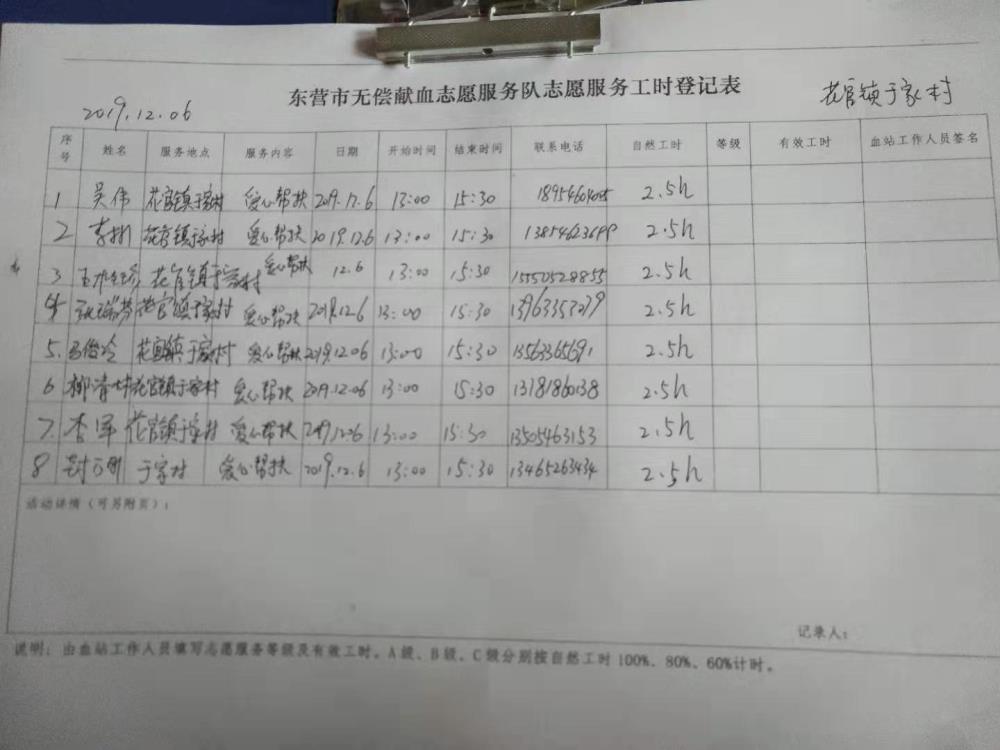 东营市无偿献血志愿服务队志愿服务工时登记表
2019.12.06 花官镇于家村
序号 姓名 服务地点 服务内容 日期 开始时间 结束时间 联系电话 自然工时 等级 有效工时 血站工作人员签名
1 吴伟 花官镇于家村 爱心帮扶 2019.12.6 13:00 15:30 2.5h
2 花官镇于家村 爱心帮扶 2019.12.6 13:00 15:30 2.5h
3 花官镇于家村 爱心帮扶 12.6 13:00 15:30 15550528855 2.5h
4 花官镇于家村 爱心帮扶 2019.12.6 13:00 15:30 2.5h
5. 花官镇于家村 爱心帮扶 2019.12.06 13:00 15:30 13563365691 2.5h
6 花官镇于家村 爱心帮扶 2019.12.06 13:00 15:30 13181860138 2.5h
7. 李军 花官镇于家村 爱心帮扶 2019.12.06 13:00 15:30 13505463153 2.5h
8 于家村 爱心帮扶 2019.12.6 13:00 15:30 13465263434 2.5h
活动详情（可另附页）：
记录人：
说明：由血站工作人员填写志愿服务等级及有效工时。A级、B级、C级分别按自然工时100%、80%、60%计时。